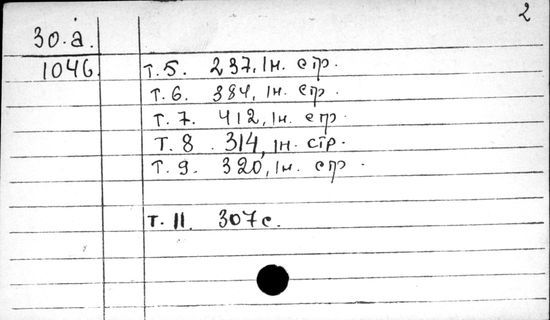 2
30.а.
1046. т.5. 237, Iн. стр.
т.6. 384, Iн. стр.
т.7. 412, Iн. стр
т.8. 314, Iн. стр.
т.9. 320, Iн. стр.
т.11. 307с.